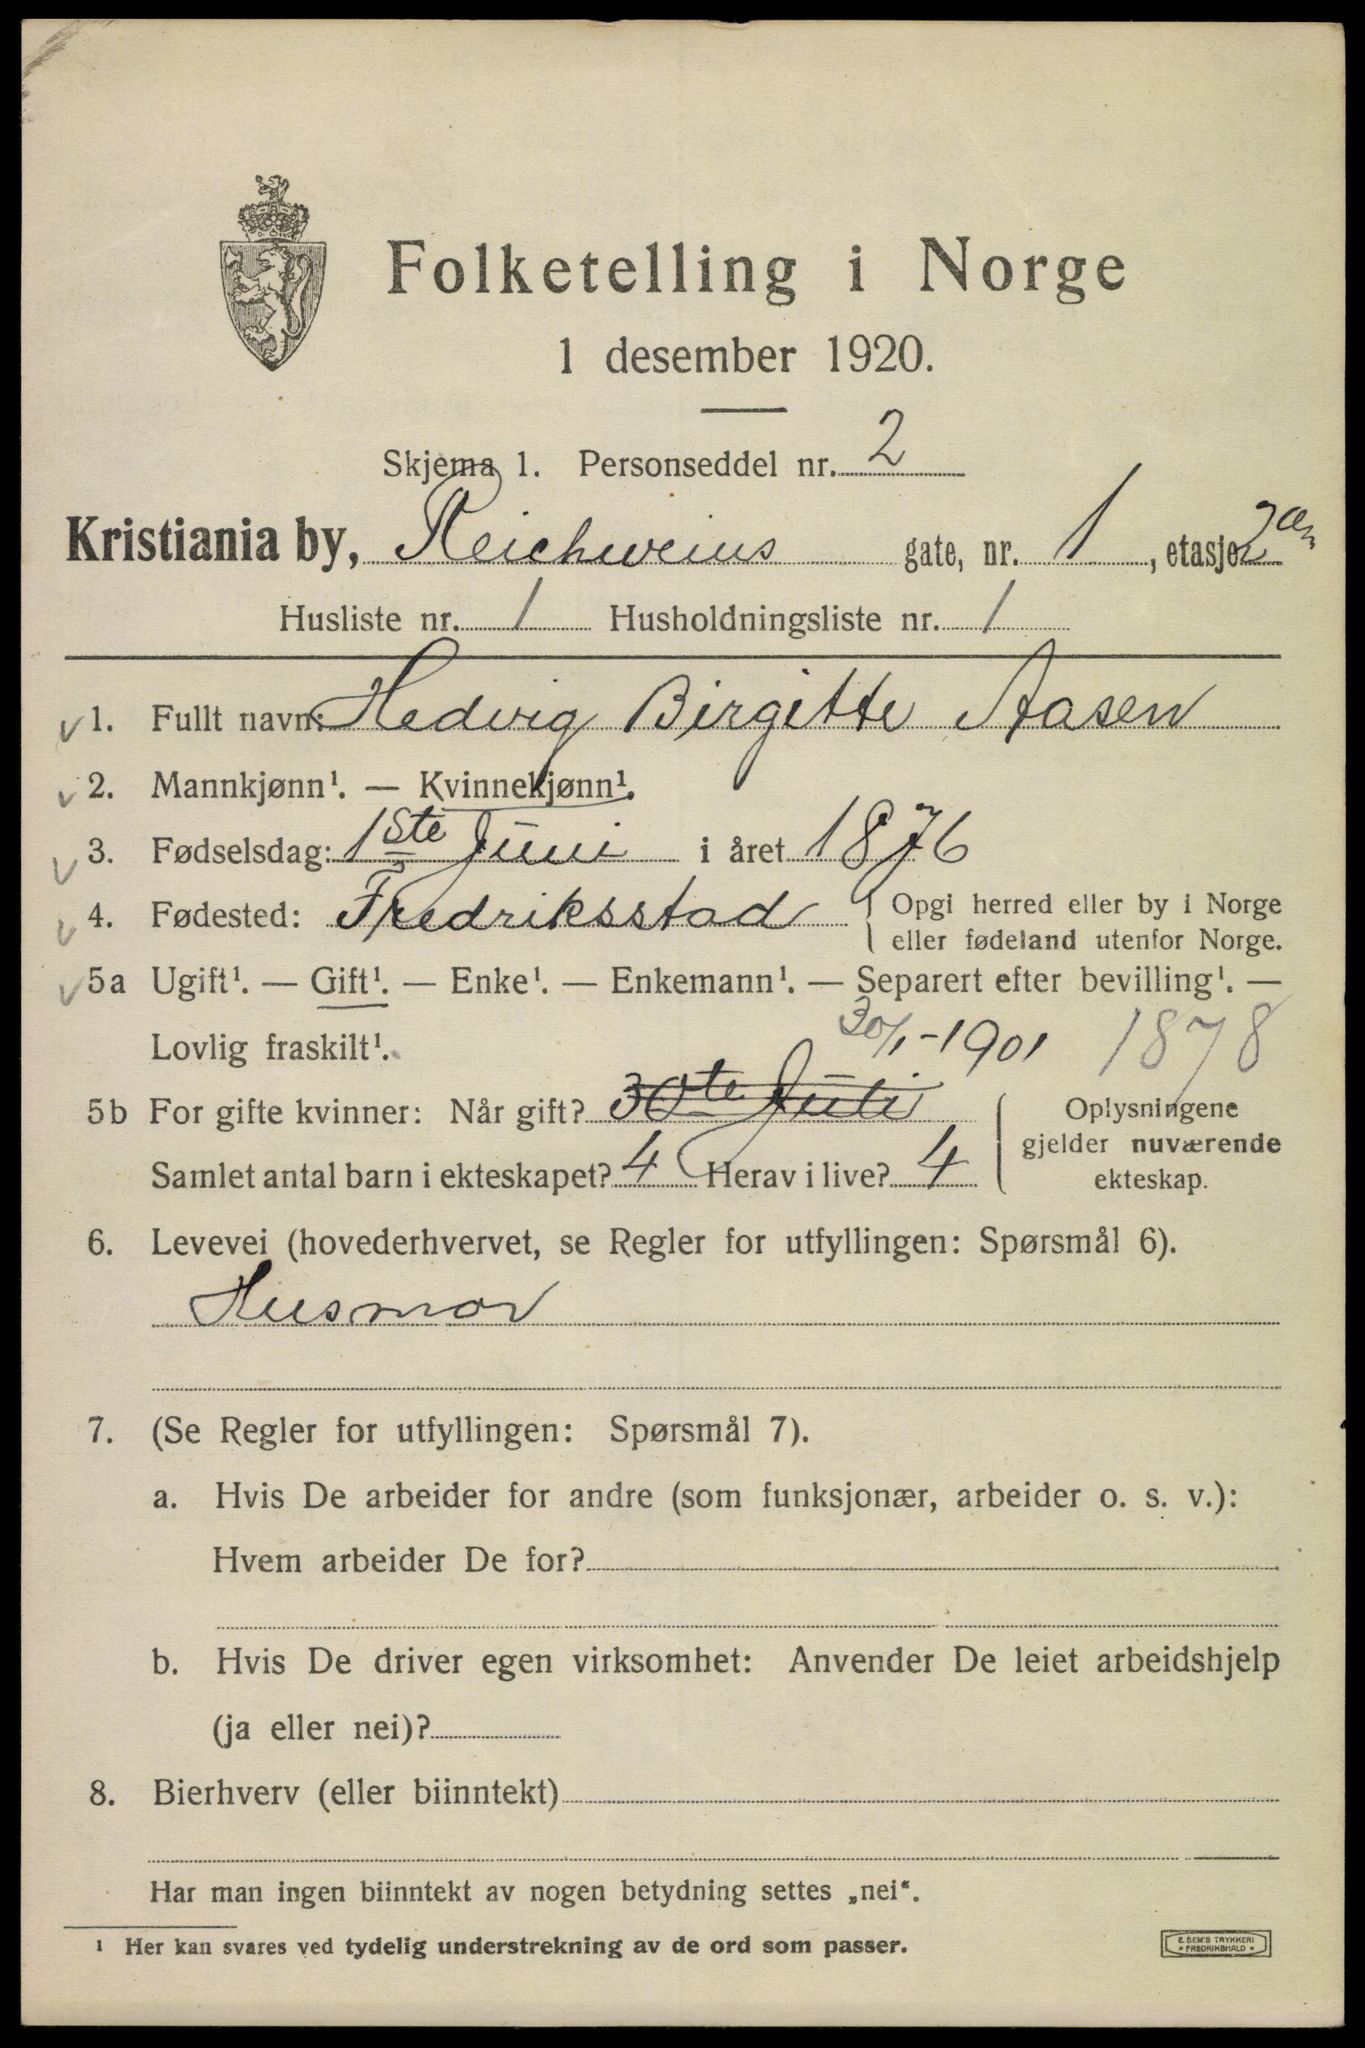 Folketelling i Norge
1 desember 1920.
Skjema 1. Personseddel nr. 2
Kristiania by, Reichweins gate, nr. 1, etasje 2en
Husliste nr. 1 Husholdningsliste nr. 1
1. Fullt navn: Hedvig Birgitte Aasen
2. Mannkjønn¹. — Kvinnekjønn¹.
3. Fødselsdag: 1ste Juni i året 1876
4. Fødested: Fredriksstad { Opgi herred eller by i Norge
eller fødeland utenfor Norge.
5a Ugift¹. — Gift¹. — Enke¹. — Enkemann¹. — Separert efter bevilling¹. —
Lovlig fraskilt¹. 30/1-1901 1878
5b For gifte kvinner: Når gift? 30te Juli
Samlet antal barn i ekteskapet? 4 Herav i live? 4
{ Oplysningene
gjelder nuværende
ekteskap.
6. Levevei (hovederhvervet, se Regler for utfyllingen: Spørsmål 6).
Husmor
7. (Se Regler for utfyllingen: Spørsmål 7).
a. Hvis De arbeider for andre (som funksjonær, arbeider o. s. v.):
Hvem arbeider De for?
b. Hvis De driver egen virksomhet: Anvender De leiet arbeidshjelp
(ja eller nei)?
8. Bierhverv (eller biinntekt)
Har man ingen biinntekt av nogen betydning settes „nei“.
¹ Her kan svares ved tydelig understrekning av de ord som passer.
E. SEM'S TRYKKERI
* FREDRIKSHALD *